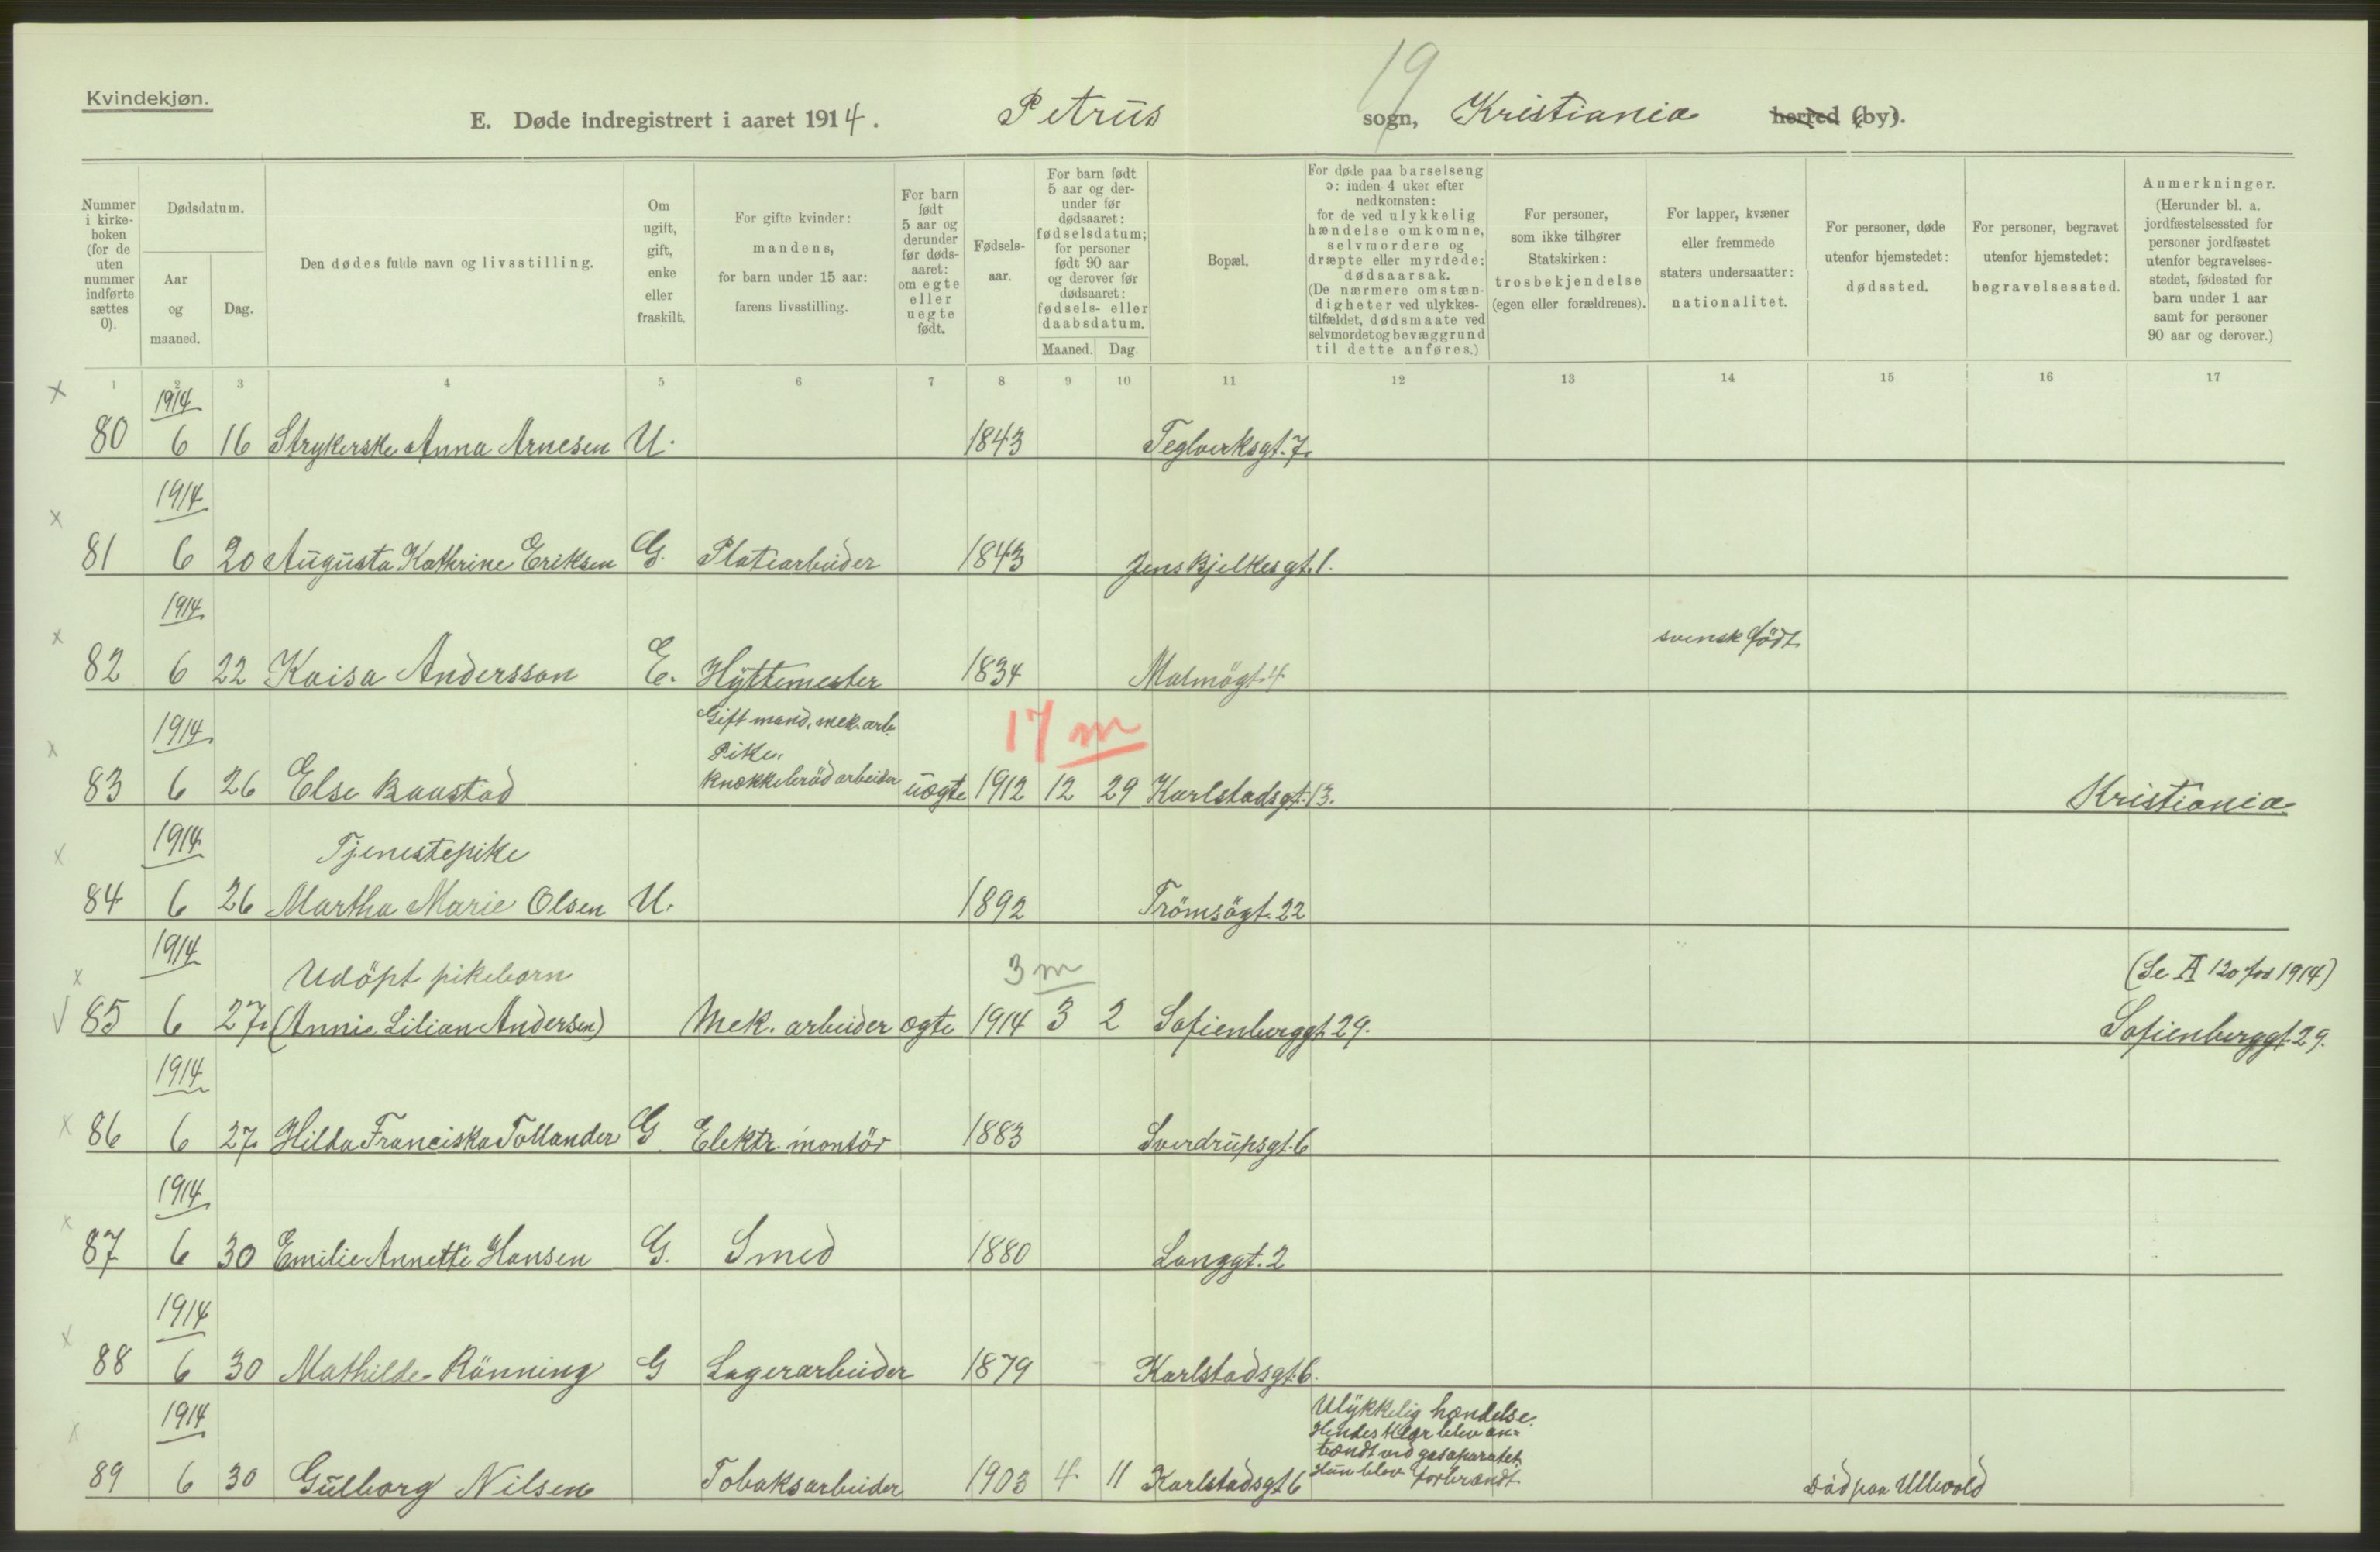 19
Kvindekjøn.
E. Døde indregistrert i aaret 1914. Petrus sogn, Kristiania herred (by).
Nummer i kirkeboken (for de uten nummer indførte sættes 0).
Dødsdatum.
Aar og maaned.
Dag.
Den dødes fulde navn og livsstilling.
Om ugift, gift, enke eller fraskilt.
For gifte kvinder: mandens, for barn under 15 aar: farens livsstilling.
For barn født 5 aar og derunder før dødsaaret: om egte eller uegte født.
Fødselsaar.
For barn født 5 aar og derunder før dødsaaret: fødselsdatum; for personer født 90 aar og derover før dødsaaret: fødsels- eller daabsdatum.
Maaned. Dag.
Bopæl.
For døde paa barselseng ɔ: inden 4 uker efter nedkomsten: for de ved ulykkelig hændelse omkomne, selvmordere og dræpte eller myrdede: dødsaarsak. (De nærmere omstændigheter ved ulykkestilfældet, dødsmaate ved selvmordet og bevæggrund til dette anføres.)
For personer, som ikke tilhører Statskirken: trosbekjendelse (egen eller forældrenes).
For lapper, kvæner eller fremmede staters undersaatter: nationalitet.
For personer, døde utenfor hjemstedet: dødssted.
For personer, begravet utenfor hjemstedet: begravelsessted.
Anmerkninger. (Herunder bl. a. jordfæstelsessted for personer jordfæstet utenfor begravelsesstedet, fødested for barn under 1 aar samt for personer 90 aar og derover.)
1 2 3 4 5 6 7 8 9 10 11 12 13 14 15 16 17
x 1914
80 6 16 Strykerske Anna Arnesen U. 1843 Teglverksgt. 7.
1914
x
81 6 20 Augusta Kathrine Eriksen G. Platearbeider 1843 Jens Bjelkesgt. 1.
1914
x svensk født
82 6 22 Kaisa Andersson E. Hyttemester 1834 Malmögt. 4
1914 Gift mand, mek. arb. 17 m
x Pike,
83 6 26 Else Baustad Knækkebröd arbeider uægte 1912 12 29 Karlstadsgt. 13. Kristiania
1914
x Tjenestepike
84 6 26 Martha Marie Olsen U. 1892 Trömsögt. 22
1914
x Udöpt pikebarn 3 m (Se A 120 for 1914)
√ 85 6 27. (Annie Lilian Andersen) Mek. arbeider ægte 1914 3 2 Sofienberggt. 29. Sofienberggt. 29.
1914
x 86 6 27. Hilda Franciska Tollander G. Elektr. montör 1883 Sverdrupsgt. 6
1914
x
87 6 30 Emilie Annette Hansen G. Smed 1880 Langgt. 2
1914
x
88 6 30 Mathilde Rönning G Lagerarbeider 1879 Karlstadsgt. 6.
1914 Ulykkelig hændelse.
x Hendes klær blev an-
tændt ved gasaparatet
89 6 30 Gulborg Nilsen Tobaksarbeider 1903 4 11 Karlstadsgt. 6 Hun blev forbrændt Död paa Ullevold